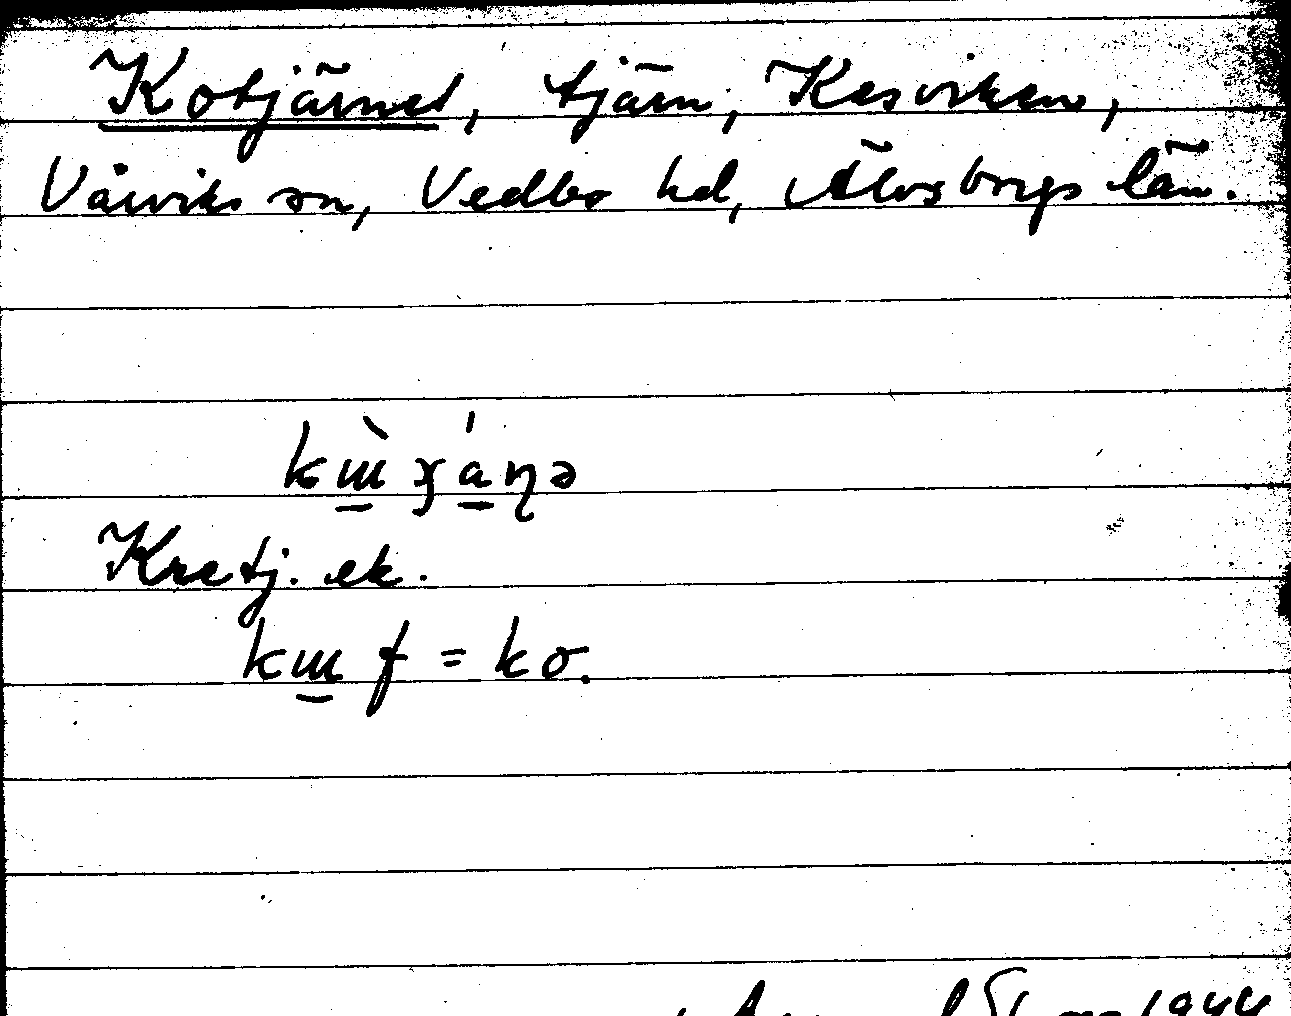 Kotjärnet, tjärn, Kesviken,
Vårviks sn, Vedbo hd, Älvsborgs län.
kɯ̠̀ ɣá̠ɳə
Kretj. ek.
kɯ̠ f = ko.
1944